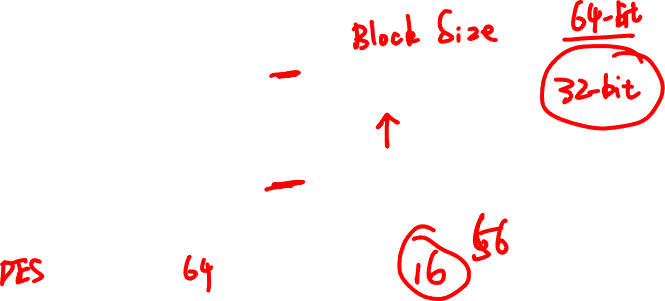 Block Size 64-bit
32-bit
DES 64 16 56